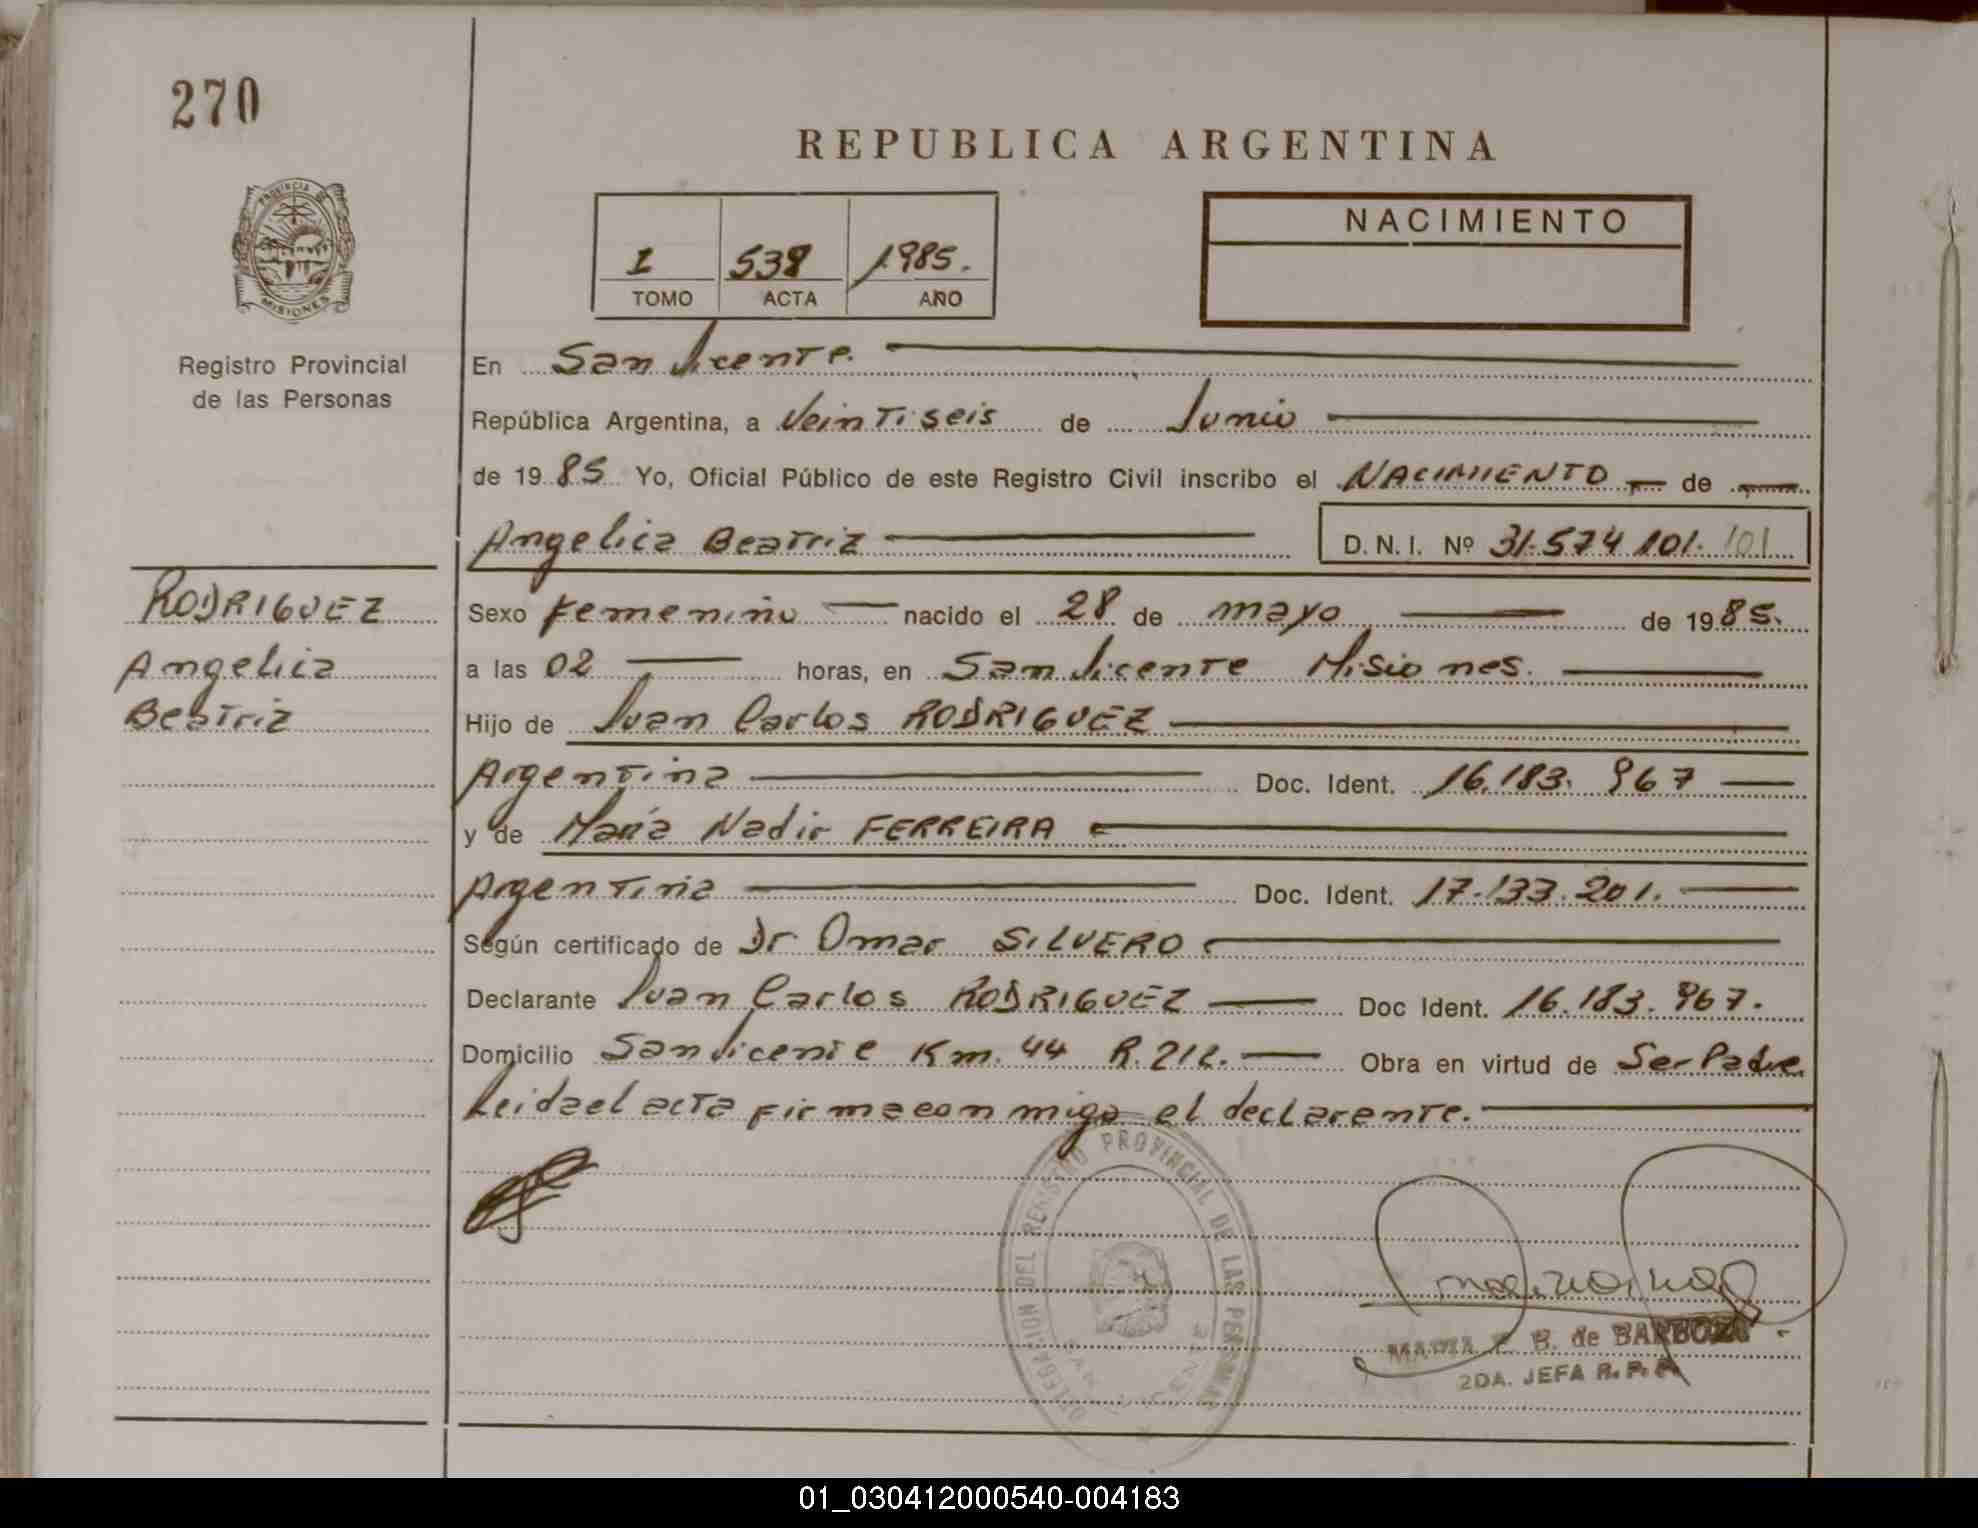 270
REPUBLICA ARGENTINA
PROVINCIA DE
MISIONES
NACIMIENTO
I 538 1985.
TOMO ACTA AÑO
Registro Provincial
de las Personas
En San Vicente.
República Argentina, a Veintiseis de Junio
de 1985 Yo, Oficial Público de este Registro Civil inscribo el NACIMIENTO de
Angelica Beatriz D.N.I. Nº 31.574 101. 101
RODRIGUEZ
Angelica
Beatriz
Sexo Femenino nacido el 28 de mayo de 1985.
a las 02 horas, en San Vicente Misiones.
Hijo de Juan Carlos RODRIGUEZ
Argentina Doc. Ident. 16.183. 967
y de María Nadir FERREIRA
Argentina Doc. Ident. 17.133.201.
Según certificado de Dr Omar SILVERO
Declarante Juan Carlos RODRIGUEZ Doc Ident. 16.183.967.
Domicilio San Vicente Km. 44 R.212. Obra en virtud de Ser Padre
Leida el acta firma con migo el declarante.
DELEGACION DEL REGISTRO PROVINCIAL DE LAS PERSONAS
SAN VICENTE
MARIA F. B. de BARBOZA
2DA. JEFA R. P. P.
01_030412000540-004183